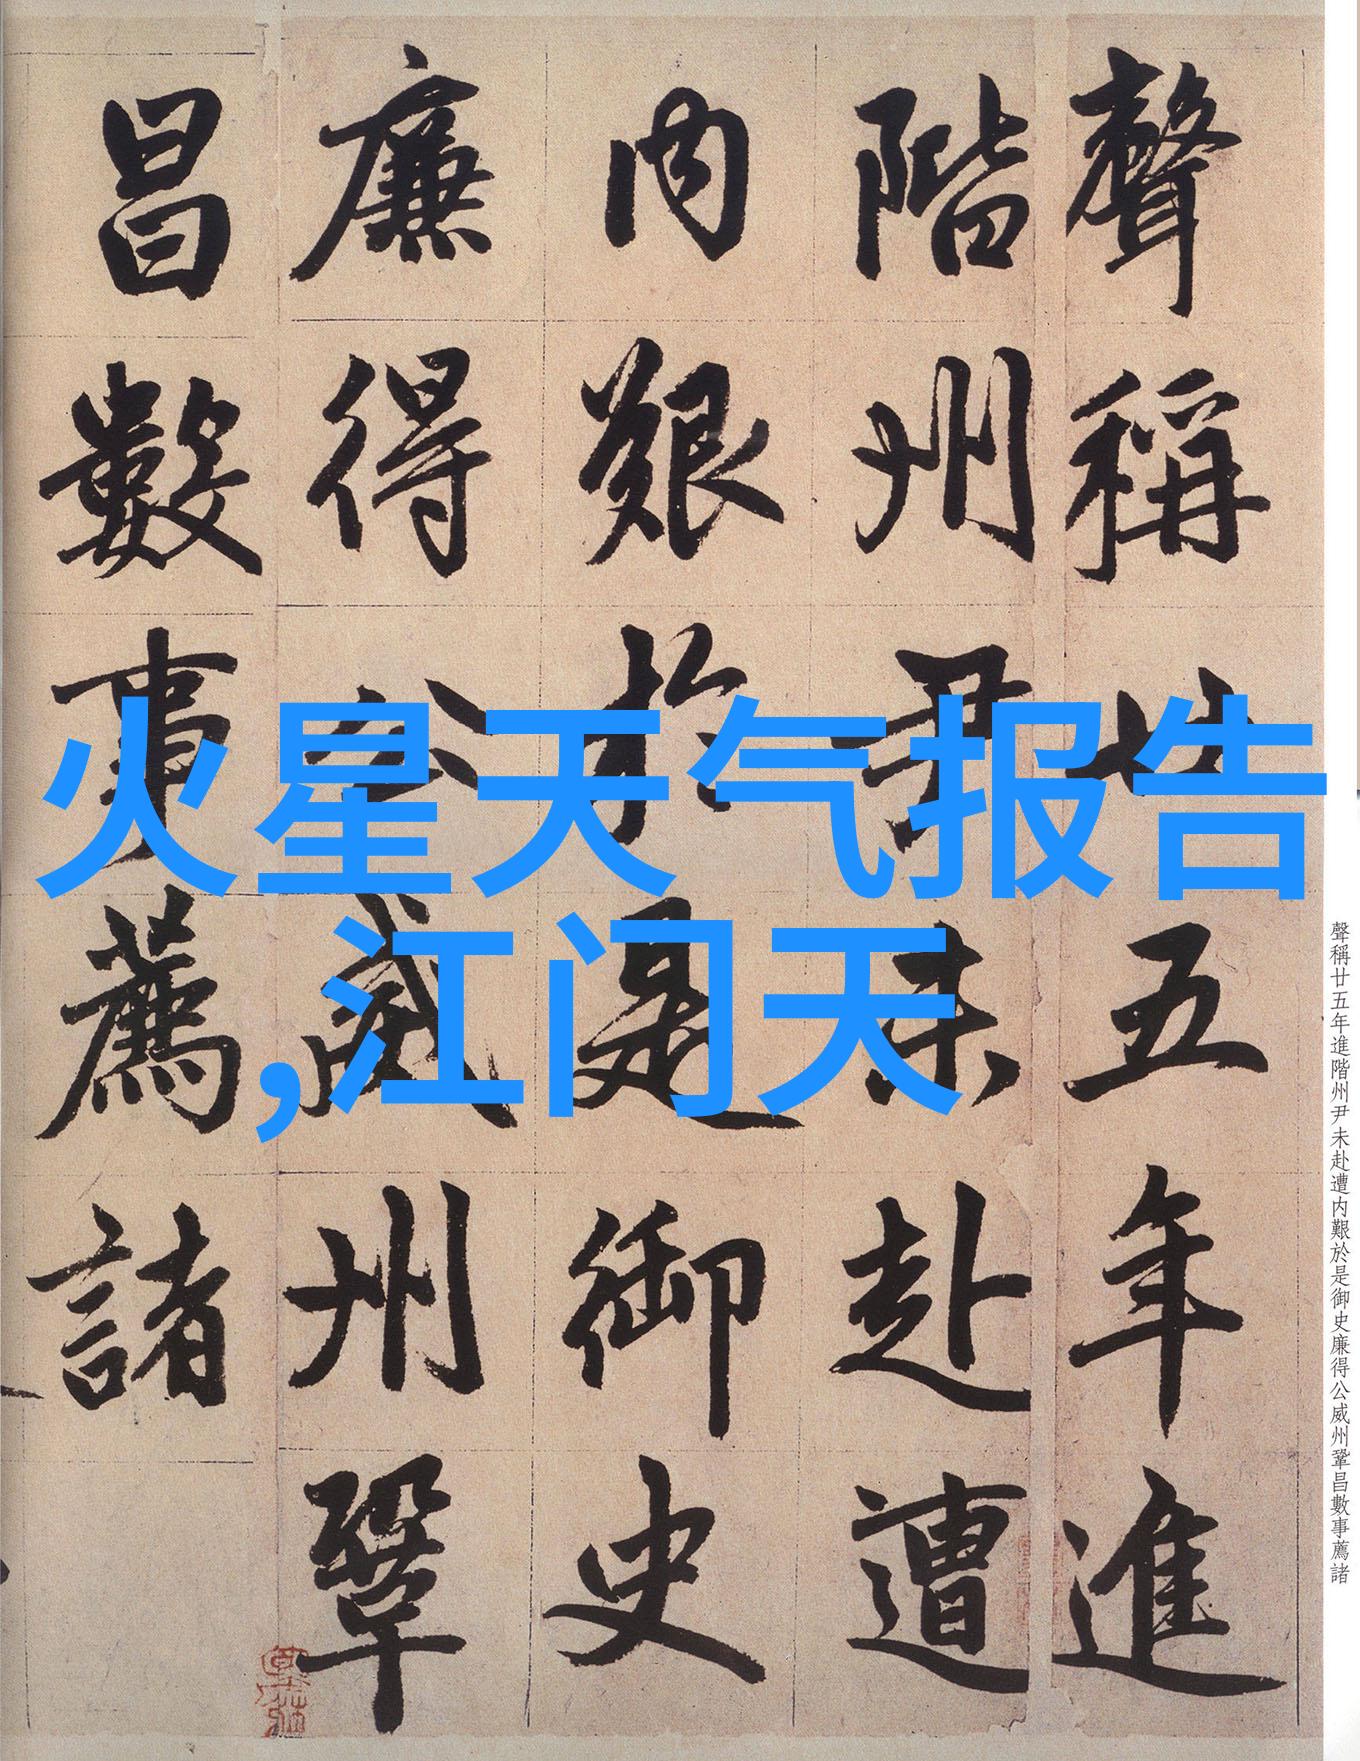 聲稱廿五年進
階州尹未赴遭
内艱於是御史
廉得公威州鞏
昌數事薦諸
火星天气报告
,江门天
聲稱廿五年進階州尹未赴遭内艱於是御史廉得公威州鞏昌數事薦諸